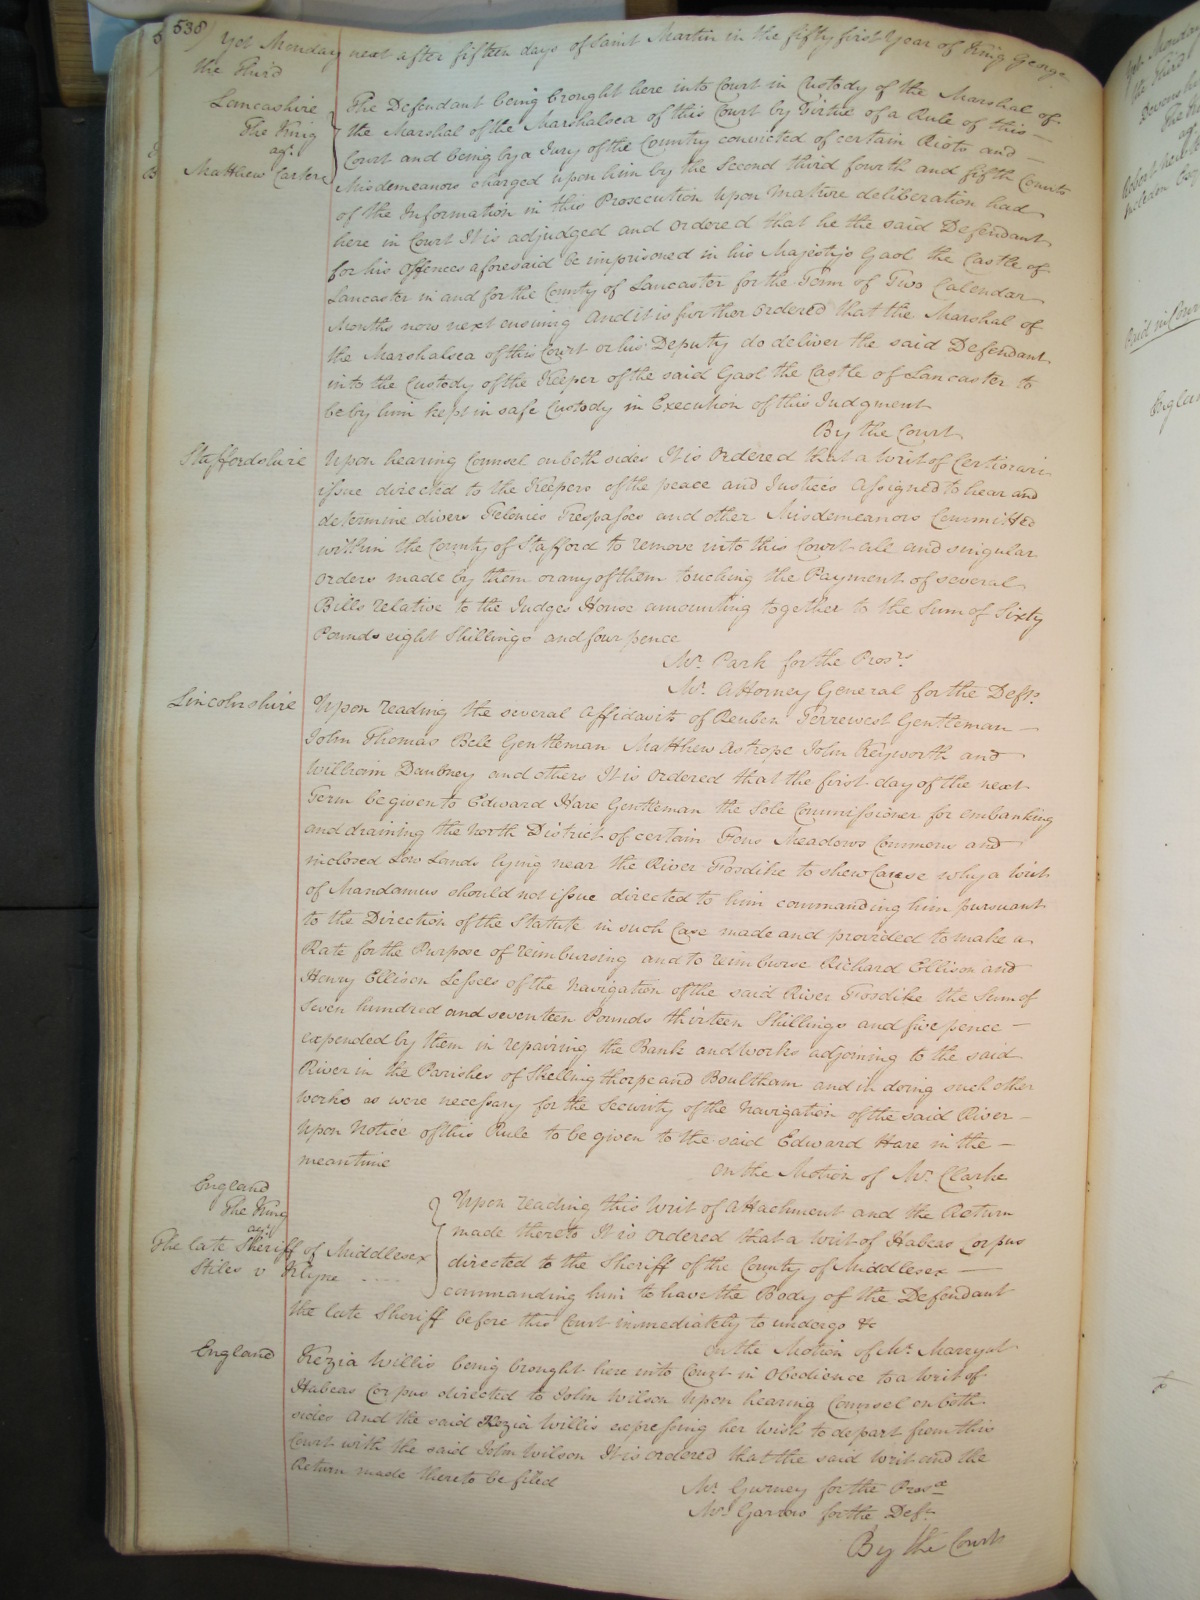 538
Yet Monday next after fifteen days of Saint Martin in the fifty first Year of King George
the Third
Lancashire
The King
agt.
Matthew Carter
The Defendant being brought here into Court in Custody of the Marshal of
the Marshal of the Marshalsea of this Court by Virtue of a Rule of this
Court and being by a Jury of the Country convicted of certain Riots and —
Misdemeanors charged upon him by the Second third fourth and fifth Counts
of the Information in this Prosecution Upon mature deliberation had
here in Court It is adjudged and Ordered that he the said Defendant
for his Offences aforesaid be imprisoned in his Majestys Gaol the Castle of
Lancaster in and for the County of Lancaster for the Term of Two Calendar
Months now next ensuing And it is further Ordered that the Marshal of
the Marshalsea of this Court or his Deputy do deliver the said Defendant
into the Custody of the Keeper of the said Gaol the Castle of Lancaster to
be by him kept in safe Custody in Execution of this Judgment
By the Court
Staffordshire
Upon hearing Counsel on both sides It is Ordered that a Writ of Certiorari
issue directed to the Keepers of the peace and Justices Assigned to hear and
determine divers Felonies Trespasses and other Misdemeanors Committed
within the County of Stafford to remove into this Court all and singular
Orders made by them or any of them touching the Payment of several
Bills relative to the Judges House amounting together to the Sum of Sixty
Pounds eight Shillings and four pence
Mr. Park for the Prosrs.
Mr. Attorney General for the Defts.
Lincolnshire
Upon reading the several Affidavits of Reuben Terrewest Gentleman —
John Thomas Bell Gentleman Matthew Astrope John Keyworth and
William Daubney and others It is Ordered that the first day of the next
Term be given to Edward Hare Gentleman the Sole Commissioner for embanking
and draining the North District of certain Fens Meadows Commons and
inclosed Low Lands lying near the River Fossdike to shew Cause why a Writ
of Mandamus should not issue directed to him commanding him pursuant
to the Direction of the Statute in such Case made and provided to make a
Rate for the Purpose of reimbursing and to reimburse Richard Ellison and
Henry Ellison Lessees of the Navigation of the said River Fossdike the Sum of
Seven hundred and seventeen Pounds thirteen Shillings and five pence —
expended by them in repairing the Bank and Works adjoining to the said
River in the Parishes of Skellingthorpe and Boultham and in doing such other
Works as were necessary for the Security of the Navigation of the said River —
Upon Notice of this Rule to be given to the said Edward Hare in the —
meantime
On the Motion of Mr. Clarke
England
The King
agt.
The late Sheriff of Middlesex
Stiles v Klyne
Upon reading this Writ of Attachment and the Return
made thereto It is ordered that a Writ of Habeas Corpus
directed to the Sheriff of the County of Middlesex —
commanding him to have the Body of the Defendant
the late Sheriff before this Court immediately to undergo &c
On the Motion of Mr. Marryat
England
Kezia Willis being brought here into Court in Obedience to a Writ of
Habeas Corpus directed to John Wilson Upon hearing Counsel on both
sides And the said Kezia Willis expressing her Wish to depart from this
Court with the said John Wilson It is Ordered that the said Writ and the
Return made thereto be filed
Mr. Gurney for the Prosx.
Mr. Garrow for the Deft.
By the Court